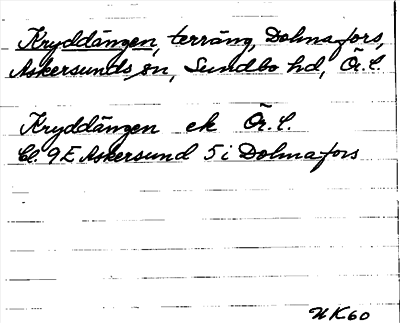 Kryddängen, terräng, Dolmafors,
Askersunds sn, Sundbo hd, Ör. l.
Kryddängen ek Ör. l.
Bl. 9E Askersund 5i Dolmafors
NK60